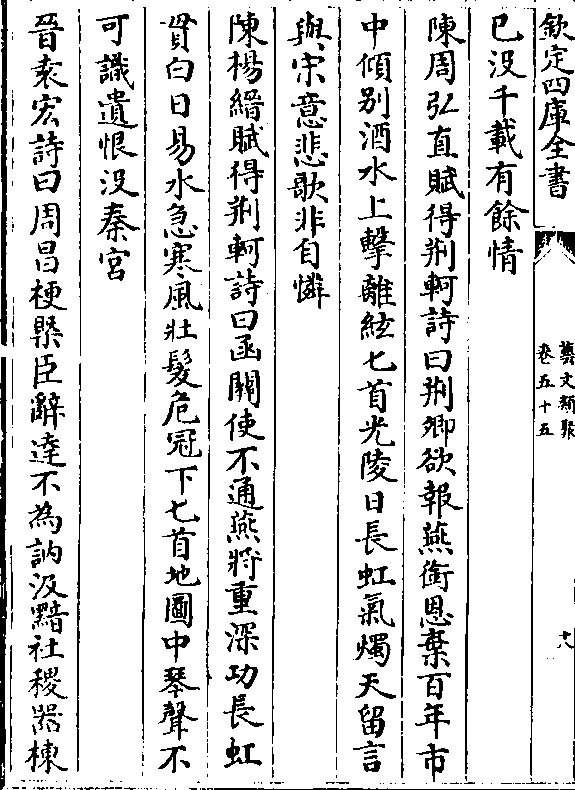 欽定四庫全書
藝文類聚
卷五十五
十八
已没千載有餘情
陳周弘直賦得荆軻詩曰荆卿欲報燕銜恩棄百年市
中傾别酒水上擊離絃匕首光陵日長虹氣燭天留言
與宋意悲歌非自憐
陳楊縉賦得荆軻詩曰函關使不通燕將重深功長虹
貫白日易水急寒風壯髮危冠下匕首地圖中琴聲不
可識遺恨没秦宫
晉袁宏詩曰周昌梗槩臣辭達不為訥汲黯社稷器棟